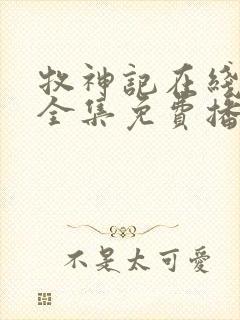 牧神記在綫
全集免費播
不是太可愛